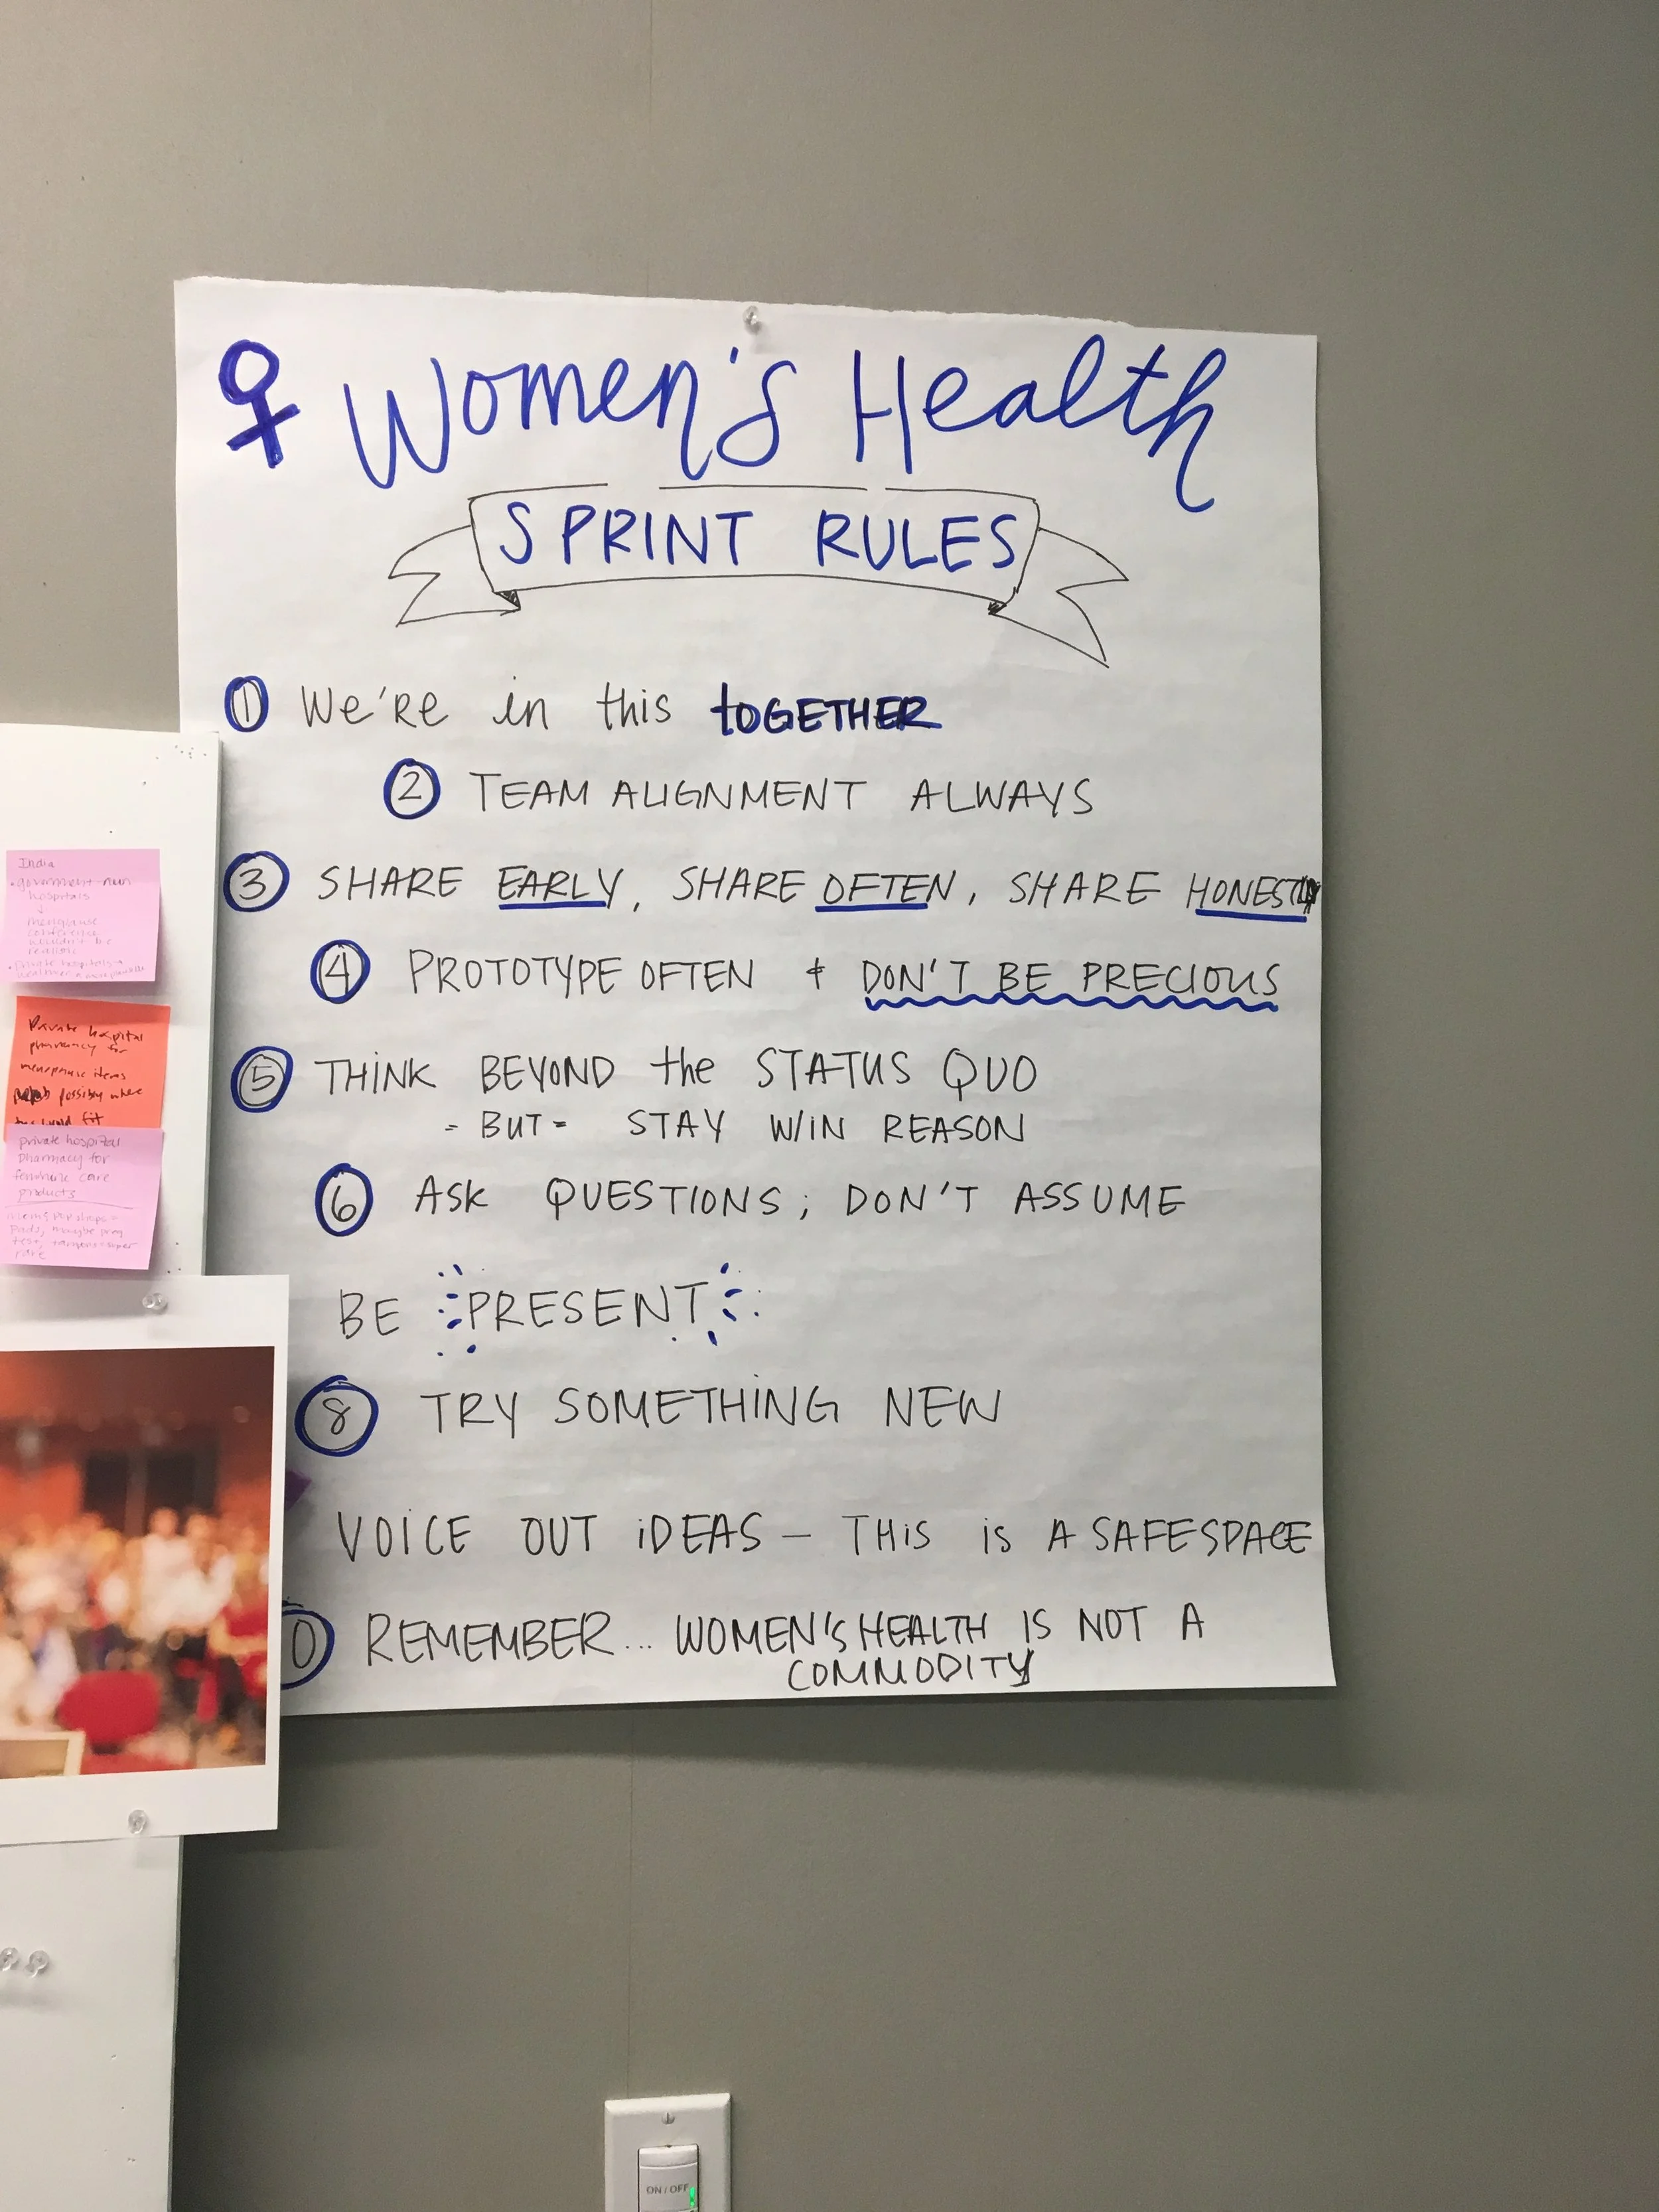 ♀ Women's Health
SPRINT RULES
① We're in this together
② TEAM ALIGNMENT ALWAYS
③ SHARE EARLY, SHARE OFTEN, SHARE HONESTLY
④ PROTOTYPE OFTEN + DON'T BE PRECIOUS
⑤ THINK BEYOND the STATUS QUO
- BUT - STAY W/IN REASON
⑥ ASK QUESTIONS; DON'T ASSUME
BE PRESENT
⑧ TRY SOMETHING NEW
VOICE OUT IDEAS — THIS is A SAFE SPACE
0 REMEMBER... WOMEN'S HEALTH IS NOT A
COMMODITY
India
• government-run
hospitals
↓
menopause
conference
wouldn't be
realistic
• private hospitals →
Private hospital
pharmacy for
menopause items
possibly where
fit
private hospital
pharmacy for
feminine care
products
pads, maybe preg
test,
care
ON / OFF